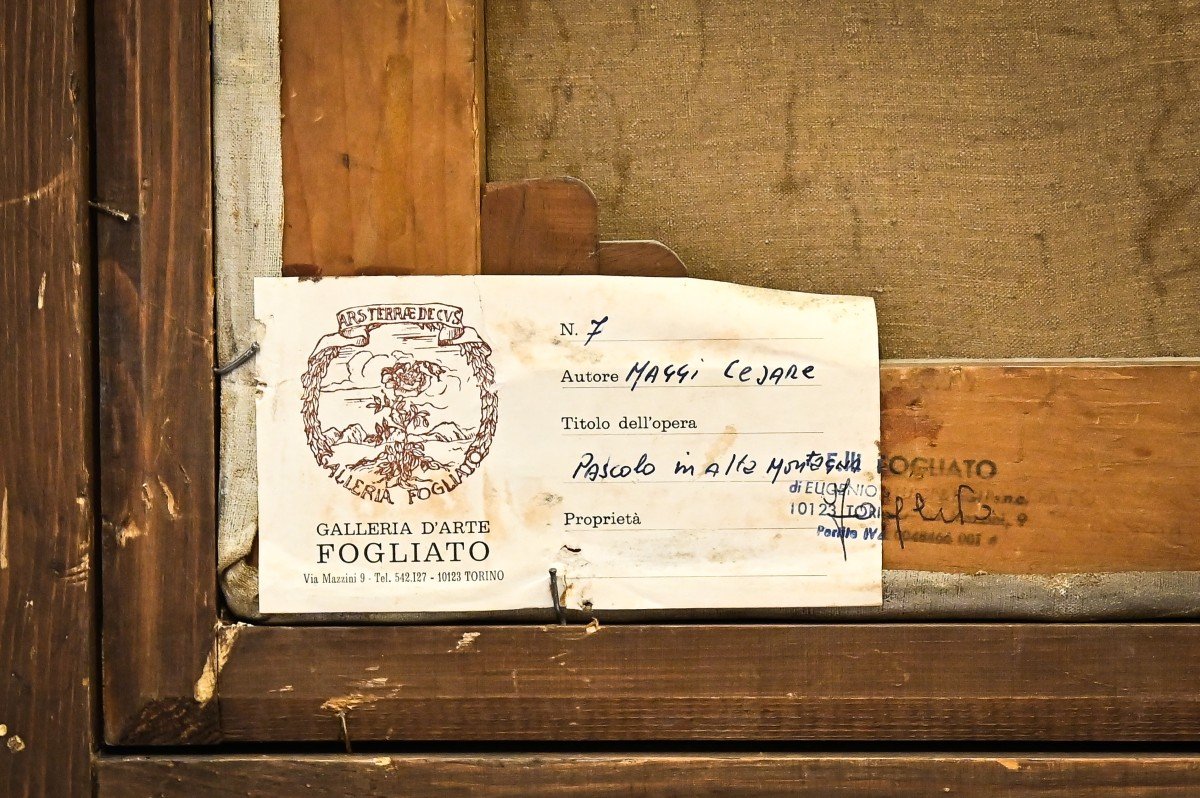 ARS TERRÆ DECVS
GALLERIA FOGLIATO
GALLERIA D'ARTE
FOGLIATO
Via Mazzini 9 - Tel. 542.127 - 10123 TORINO
N. 7
Autore MAGGI CESARE
Titolo dell'opera
Pascolo in alta montagna
Proprietà
F.lli FOGLIATO
di EUGENIO
10123 TORI
Partita IVA